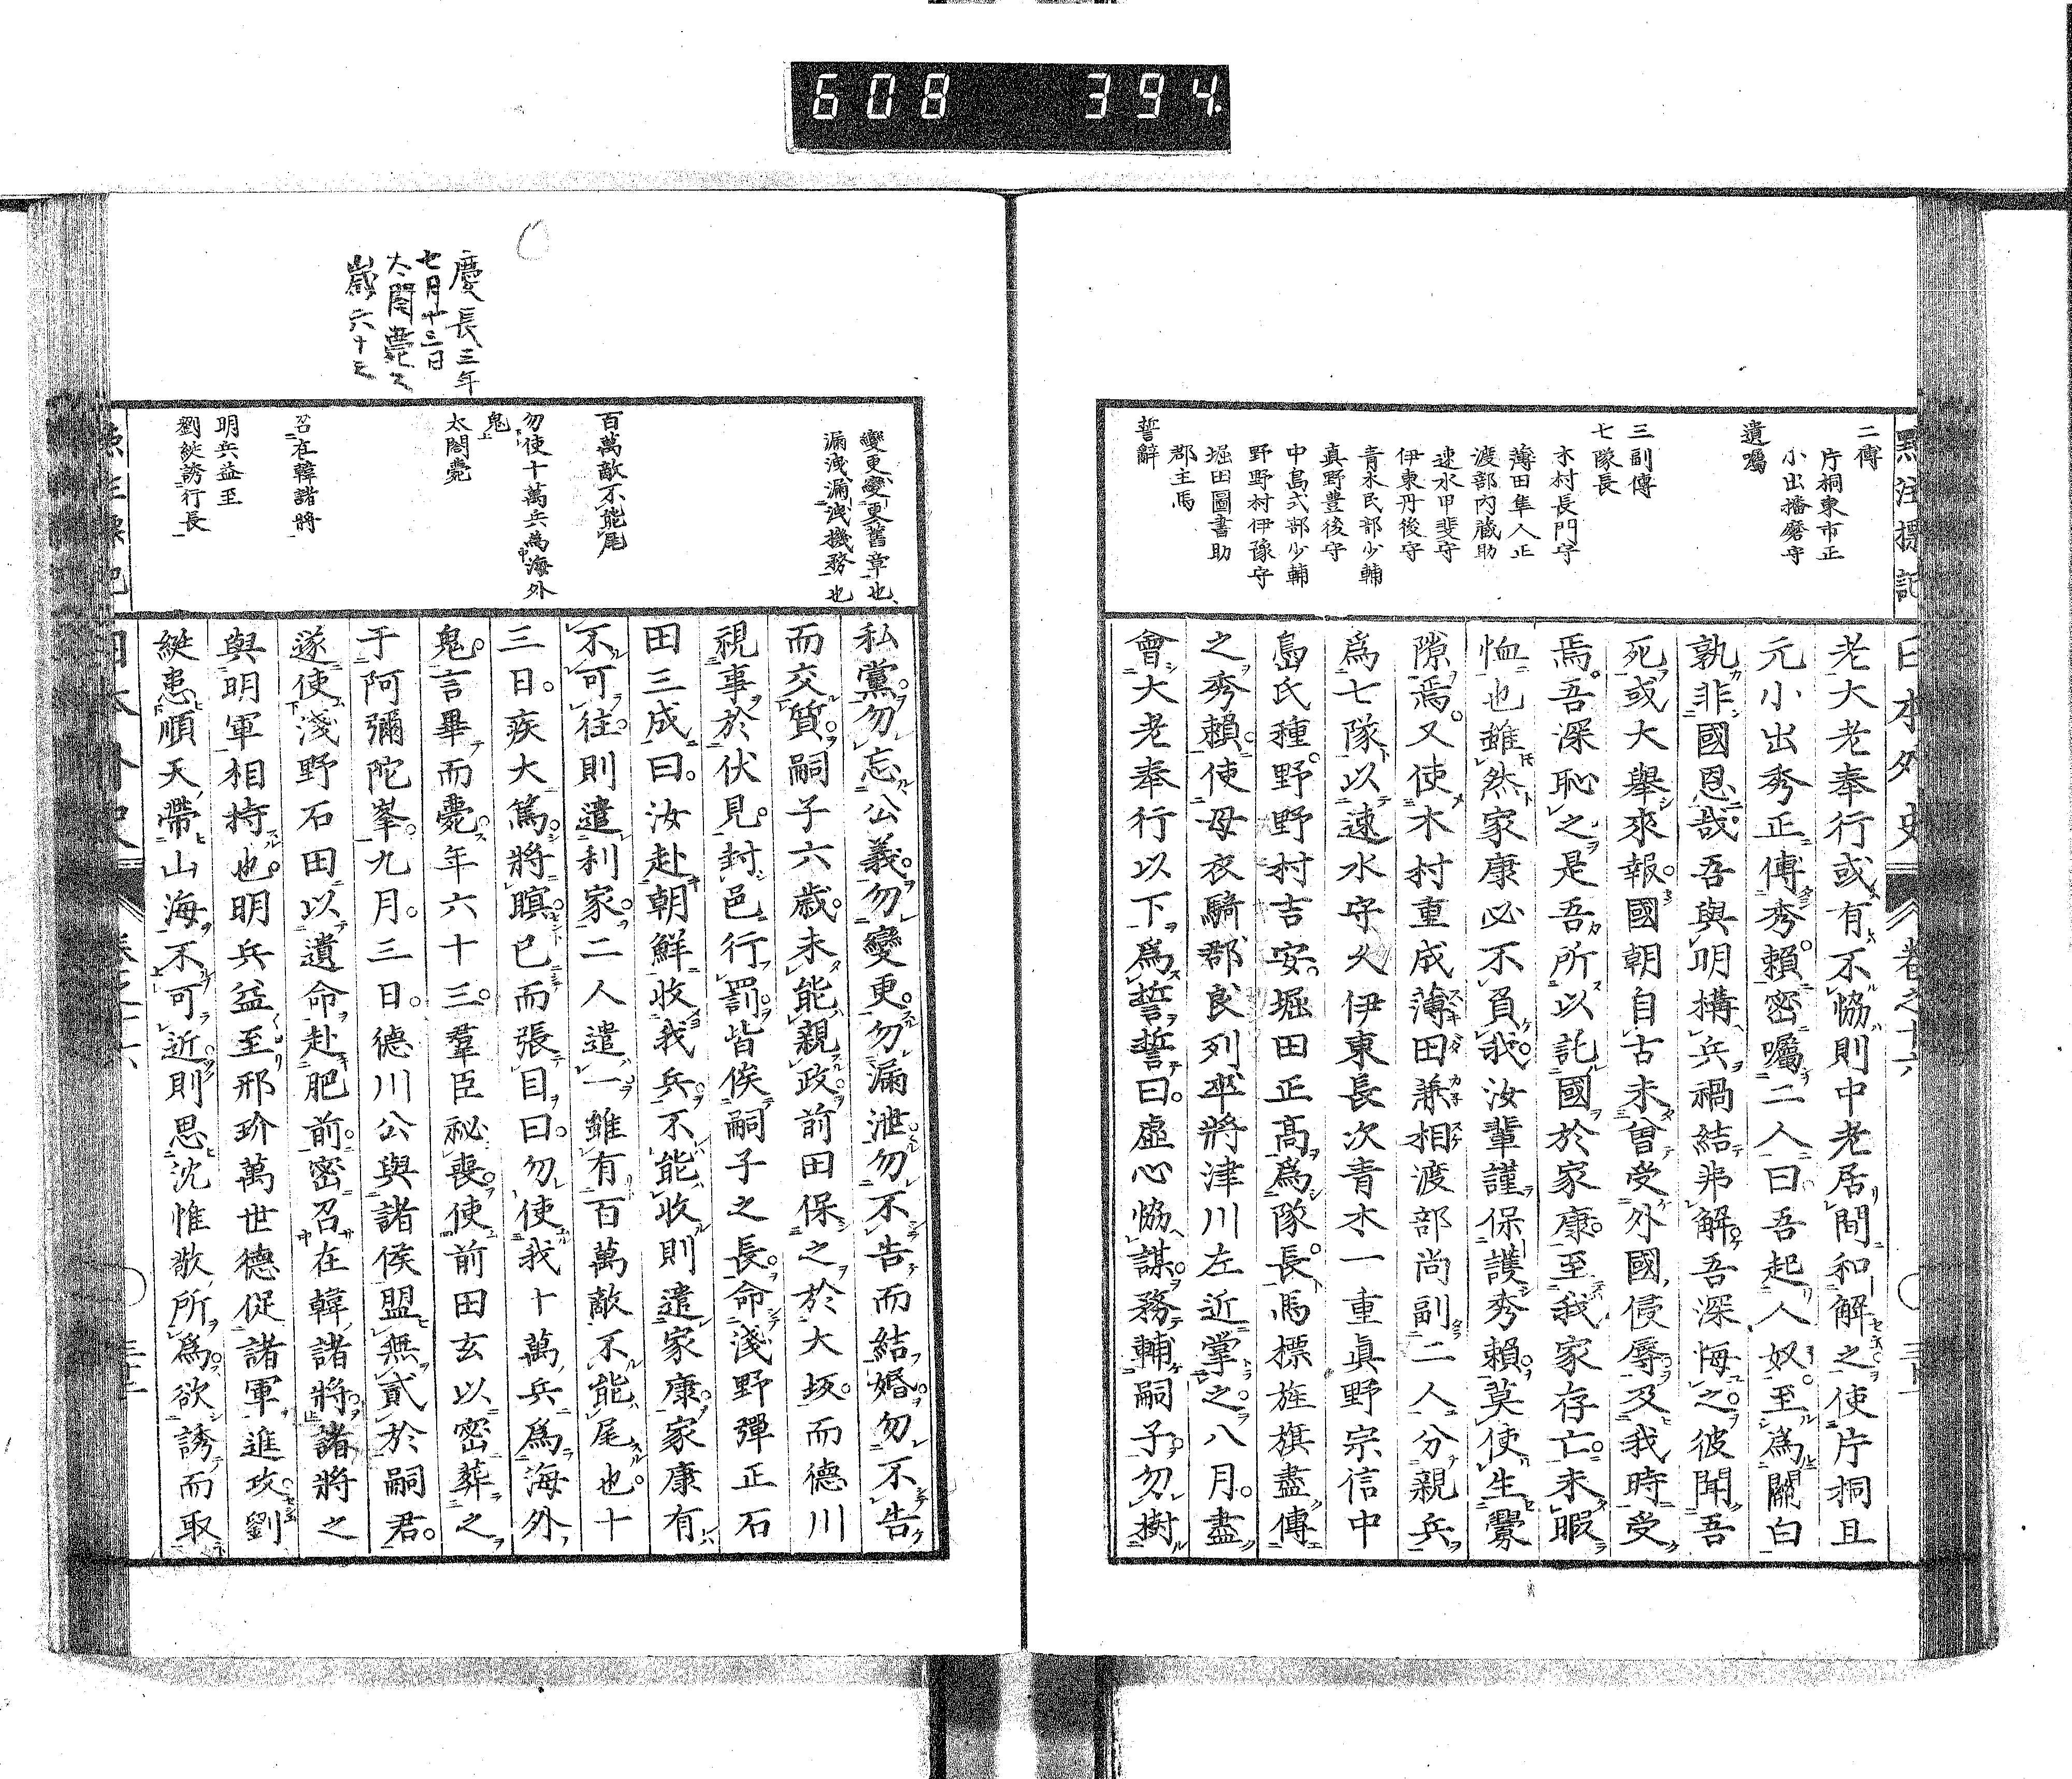 608 394
點注標記
日本外史 卷之十六
二傳
片桐東市正
小出播磨守
遺囑
三副傳
七隊長
木村長門守
薄田隼人正
渡部内藏助
速水甲斐守
伊東丹後守
青木民部少輔
真野豊後守
中島式部少輔
野野村伊豫守
堀田圖書助
郡主馬
誓辭
老大老奉行或有不恊則中老居間和解之使片桐且
元小出秀正傅秀賴密囑二人曰吾起人奴至爲關白
孰非國恩哉吾與明構兵禍結弗解吾深悔之彼聞吾
死或大擧來報國朝自古未曾受外國侵辱及我時受
焉吾深恥之是吾所以託國於家康至我家存亡未暇
恤也雖然家康必不負我汝輩謹保護秀賴莫使生釁
隙焉又使木村重成薄田兼相渡部尚副二人分親兵
爲七隊以速水守久伊東長次青木一重眞野宗信中
島氏種野野村吉安堀田正高爲隊長馬標旌旗盡傳
之秀賴使母衣騎郡良列卒將津川左近掌之八月盡
會大老奉行以下爲誓誓曰虛心恊謀務輔嗣子勿樹
變更變更舊章也
漏洩漏洩機務也
百萬敵不能尾
勿使十萬兵爲海外
鬼
太閤薨
召在韓諸將
明兵益至
劉綎誘行長
慶長三年
七月十三日
太閤薨ス
歲六十三
私黨勿忘公義勿變更勿漏泄勿不告而結婚勿不告
而交質嗣子六歲未能親政前田保之於大坂而德川
視事於伏見封邑行罰皆俟嗣子之長命淺野彈正石
田三成曰汝赴朝鮮收我兵不能收則遣家康家康有
不可往則遣利家二人遣一雖有百萬敵不能尾也十
三日疾大篤將瞑已而張目曰勿使我十萬兵爲海外
鬼言畢而薨年六十三羣臣祕喪使前田玄以密葬之
于阿彌陀峯九月三日德川公與諸侯盟無貳於嗣君
遂使淺野石田以遺命赴肥前密召在韓諸將諸將之
與明軍相持也明兵益至邢玠萬世德促諸軍進攻劉
綎恚順天帶山海不可近則思沈惟敬所爲欲誘而取